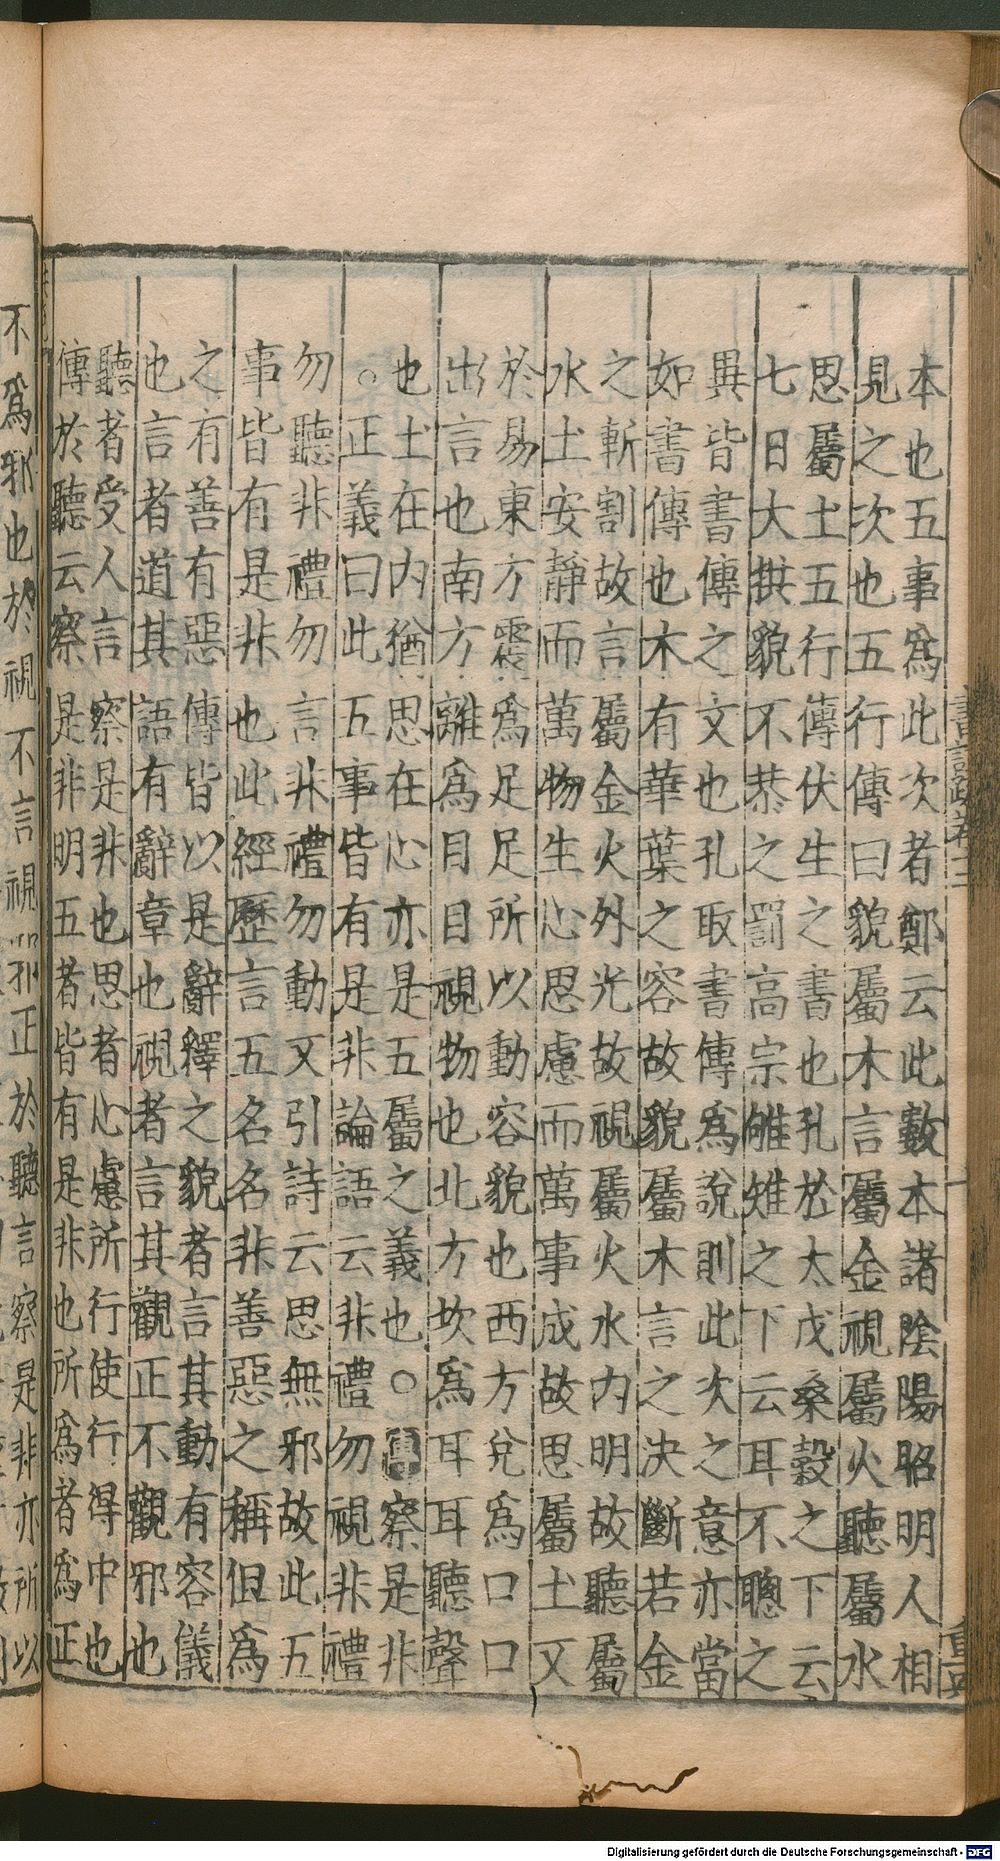 本也五事爲此次者鄭云此數本諸陰陽昭明人相
見之次也五行傳曰貌屬木言屬金視屬火聽屬水
思屬土五行傳伏生之書也孔於太戊桑穀之下云
七日大拱貌不恭之罰高宗雊雉之下云耳不聰之
異皆書傳之文也孔取書傳爲說則此次之意亦當
如書傳也木有華葉之容故貌屬木言之决斷若金
之斬割故言屬金火外光故視屬火水内明故聽屬
水土安靜而萬物生心思慮而萬事成故思屬土又
於易東方震爲足足所以動容貌也西方兌爲口口
出言也南方離爲目目視物也北方坎爲耳耳聽聲
也土在内猶思在心亦是五屬之義也○傳察是非
○正義曰此五事皆有是非論語云非禮勿視非禮
勿聽非禮勿言非禮勿動又引詩云思無邪故此五
事皆有是非也此經歷言五名名非善惡之稱但爲
之有善有惡傳皆以是辭釋之貌者言其動有容儀
也言者道其語有辭章也視者言其觀正不觀邪也
聽者受人言察是非也思者心慮所行使行得中也
傳於聽云察是非明五者皆有是非也所爲者爲正
不爲邪也於視不言視邪正於聽言察是非亦所以
Digitalisierung gefördert durch die Deutsche Forschungsgemeinschaft - DFG